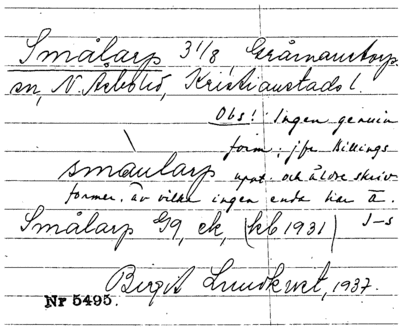 Smålarp 3 1/8, Gråmanstorps
sn, N. Åsbo hd, Kristianstads l.
Obs! Ingen genuin
form, jfr Billings
småularp uppt. och äldre skriv-
former, av vilka ingen enda har ā.
Smålarp G9, ek, (kb 1931) J-s
Birgit Lundkvist, 1937.
Nr 5495.